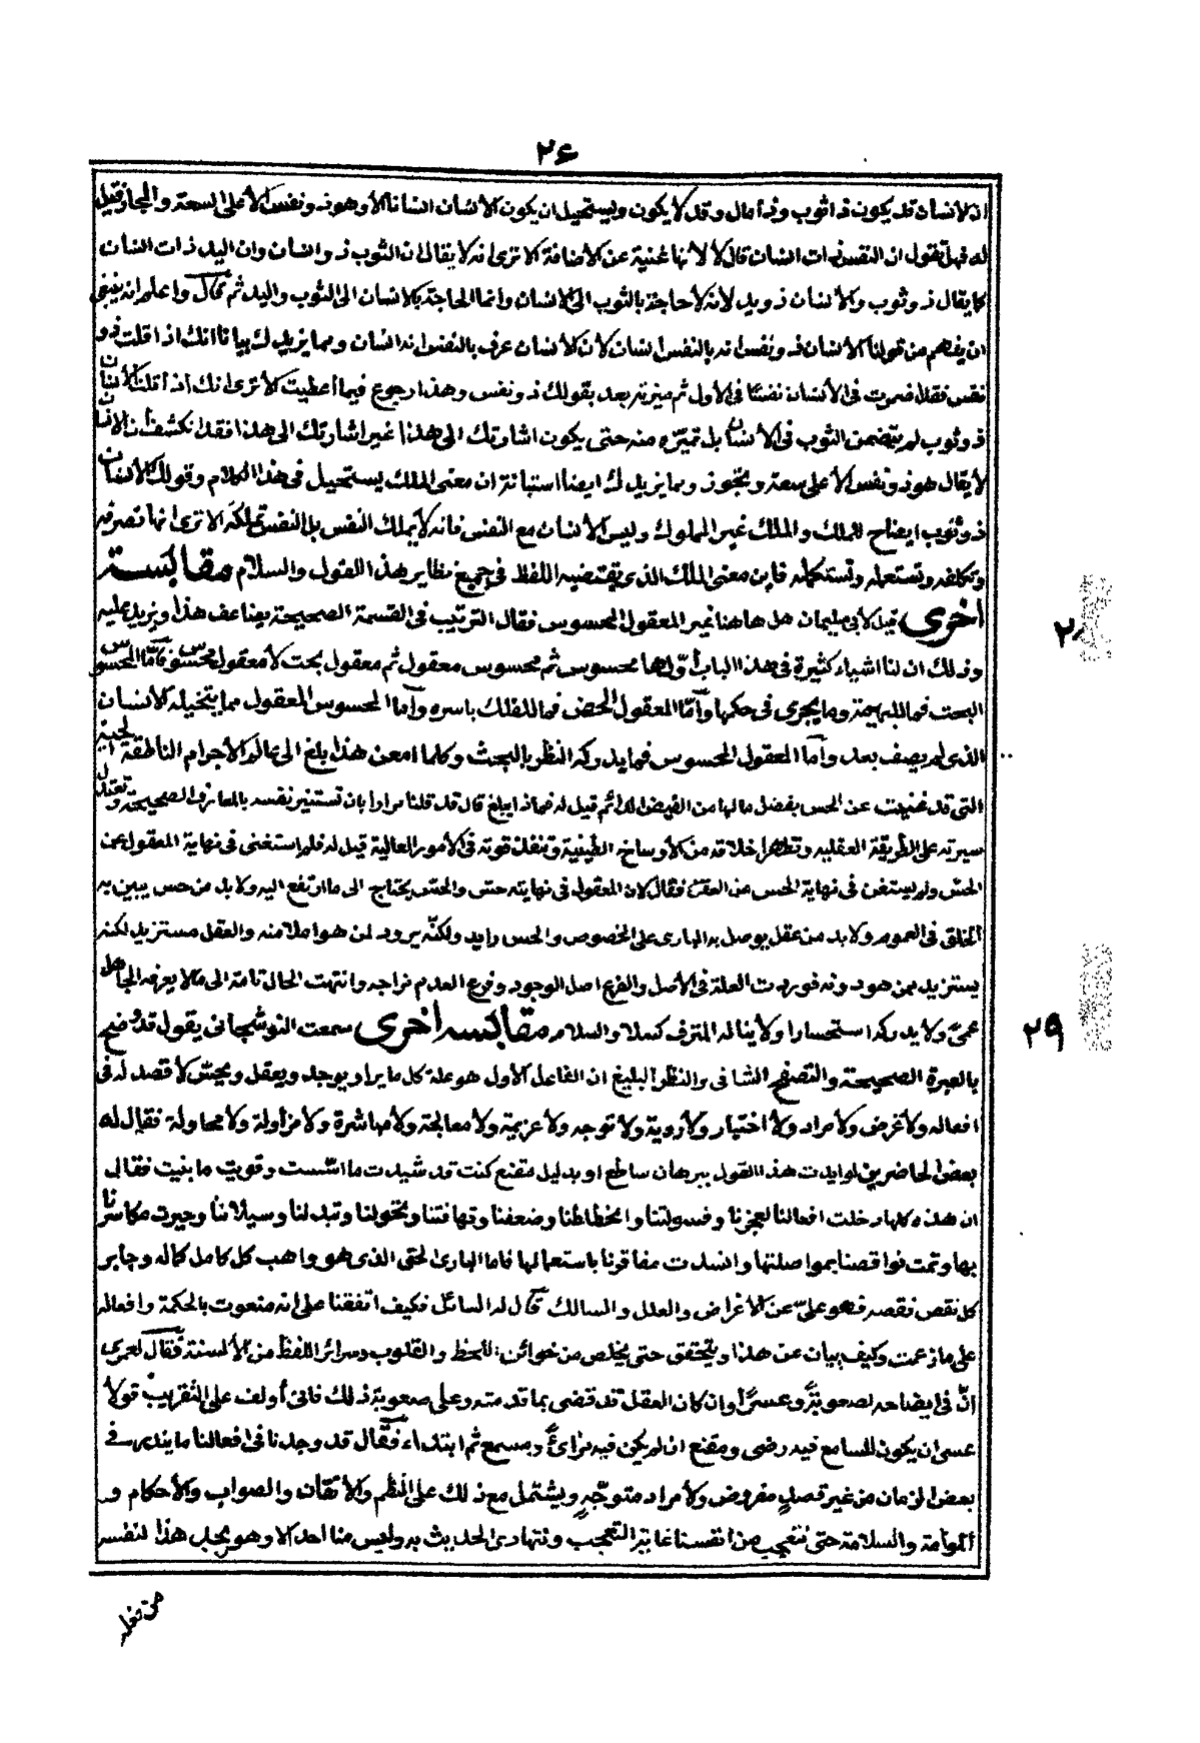 ٢٦
ان الانسان قد يكون ذا ثوب وذا مال وقد لا يكون ويستحيل ان يكون الانسان انسانا الا وهو ذو نفس الا على السعة والمجاز قيل
له فهل تقول ان النفس ذات انسان قال لا لانها غنية عن الاضافة الا ترى انه لا يقال ان الثوب ذو انسان وان اليد ذات انسان
كما يقال ذو ثوب والانسان ذو يد لانه لا حاجة بالثوب الى الانسان وانما الحاجة بالانسان الى الثوب واليد ثم قال واعلم انه ينبغى
ان يفهم من قولنا الانسان ذو نفس انه بالنفس انسان لان الانسان عرف بالنفس انه انسان ومما يزيدك بيانا انك اذا قلت ذو
نفس فقد ضمرت فى الانسان نفسًا فى الاول ثم ميزته بعد بقولك ذو نفس وهذا رجوع فيما اعطيت الا ترى انك اذا قلت الانسان
ذو ثوب لم يتضمن الثوب فى الانسان بل تميزه منه حتى يكون اشارتك الى هذا غير اشارتك الى هذا فقد انكشف ان الانسان
لا يقال هو ذو نفس الا على سعة وتجوز ومما يزيدك ايضا استبانة ان معنى الملك يستحيل فى هذا الكلام وقولك الانسان
ذو ثوب ايضاح للملك والملك غير المملوك وليس الانسان مع النفس فانه لا يملك النفس بل النفس تملكه الا ترى انها تصرفه
وتكلفه وتستعمله وتستكمله فاين معنى الملك الذى يقتضيه اللفظ فى جميع نظاير هذا القول والسلام مقابسة
اخرى قيل لابى سليمان هل هاهنا غير المعقول المحسوس فقال الترتيب فى القسمة الصحيحة يضاعف هذا ويزيد عليه
٢٨
وذلك ان لنا اشياء كثيرة فى هذا الباب اولها محسوس ثم محسوس معقول ثم معقول بحت لا معقول محسوس فاما المحسوس
البحت فما للبهيمة وما يجرى فى حكمها واما المعقول المحض فما للفلك باسره واما المحسوس المعقول مما يتخيله الانسان
الذى لم يصف بعد واما المعقول المحسوس فما يدركه النظر بالبحث وكلما امعن هذا بلغ الى عالم الاجرام الناطقة الحية
التى قد غنيت عن الحس بفضل ما لها من الفيض الدائم قيل له فماذا يبلغ قال قد قلنا مرارا بان تستنير نفسه بالمعارف الصحيحة وتعتدل
سيرته على الطريقة العقلية وتطهر اخلاقه من الاوساخ الطينية وتنفذ قوته فى الامور العالية قيل له فلم استغنى فى نهاية المعقول عن
الحس ولم يستغن فى نهاية الحس عن العقل فقال لان المعقول فى نهايته حس والحس يحتاج الى ما ارتفع اليه ولا بد من حس يبين به
الخلق فى العموم ولا بد من عقل يوصل به البارى على الخصوص والحس رايد ولكنه يرود لمن هو اعلا منه والعقل مستزيد لكنه
يستزيد ممن هو دونه فوردت العلة فى الاصل والفرع اصل الوجود وفرع العدم فراجه وانتهت الحال تامة الى ما لا يعرفه الجاهل
عمى ولا يدركه استحسارا ولا يناله المترف كسلا والسلام مقابسه اخرى سمعت النوشجانى يقول قد وضح
٢٩
بالعبرة الصحيحة والتصفح الشافى والنظر البليغ ان الفاعل الاول هو علة كل ما يراد يوجد ويعقل ويحس لا قصد له فى
افعاله ولا غرض ولا مراد ولا اختيار ولا روية ولا توجه ولا عزيمة ولا معالجة ولا مباشرة ولا مزاولة ولا محاولة فقال له
بعض الحاضرين لو ايدت هذا القول ببرهان ساطع او بدليل مقنع كنت قد شيدت ما اسّست وقويت ما بنيت فقال
ان هذه كلها دخلت افعالنا لعجزنا وفسولتنا وانحطاطنا وضعفنا وتهافتنا وتحولنا وتبدلنا وسيلاننا وجبرت مكاسرنا
بها وتمت نواقصنا بمواصلتها وانسدت مفاقرنا باستعمالها فاما البارئ الحق الذى هو واهب كل كامل كماله وجابر
كل نقص نقصه فهو علىّ عن الاغراض والعلل والمسالك قال له السائل فكيف اتفقنا على انه منعوت بالحكمة وافعاله
على ما زعمت وكيف بيان عن هذا ويتحقق حتى يخلص من خوائن اللحظ والقلوب وسرائر اللفظ من الالسنة فقال لعمرى
انّ فى ايضاحه لصعوبةً وعسرًا وان كان العقل قد قضى بما قدمته وعلى صعوبة ذلك فانى اولف على التقريب قولا
عسى ان يكون للسامع فيه رضى ومقنع ان لم يكن فيه مراىً ومسمع ثم ابتداء فقال قد وجدنا فى افعالنا ما يندر فى
بعض الزمان من غير قصدٍ مفروض ولا مراد متوجّهٍ ويشتمل مع ذلك على النظم والاتقان والصواب والاحكام و
المؤامة والسلامة حتى نتعجب من انفسنا غاية التعجب ونتهادى الحديث به وليس منا احد الا وهو يجد هذا لنفسه